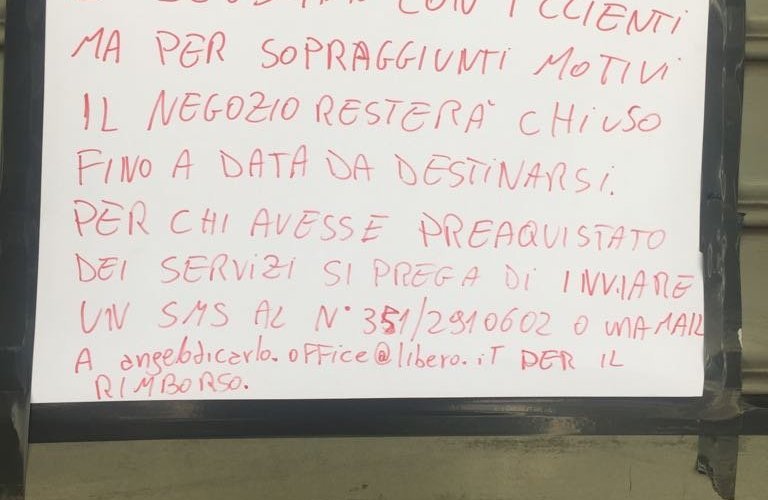 CON I CLIENTI
MA PER SOPRAGGIUNTI MOTIVI
IL NEGOZIO RESTERÀ CHIUSO
FINO A DATA DA DESTINARSI.
PER CHI AVESSE PREAQUISTATO
DEI SERVIZI SI PREGA DI INVIARE
UN SMS AL N° 351/2910602 O UNA MAIL
A angelodicarlo.office@libero.iT PER IL
RIMBORSO.